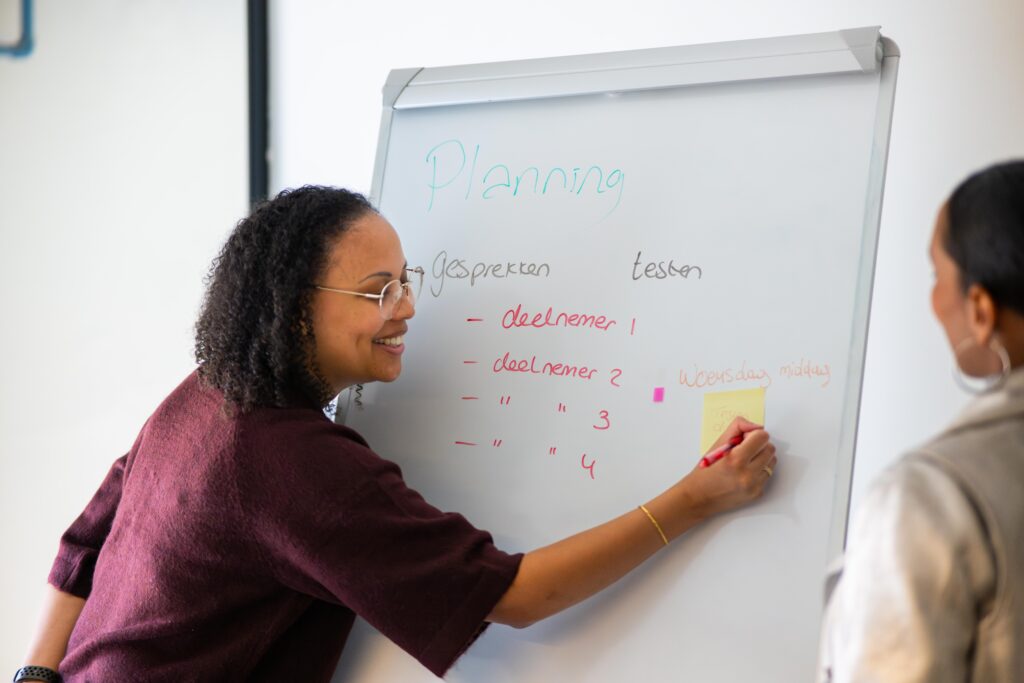 Planning
gesprekken testen
- deelnemer 1
- deelnemer 2
- " " 3
- " " 4
Woensdag middag